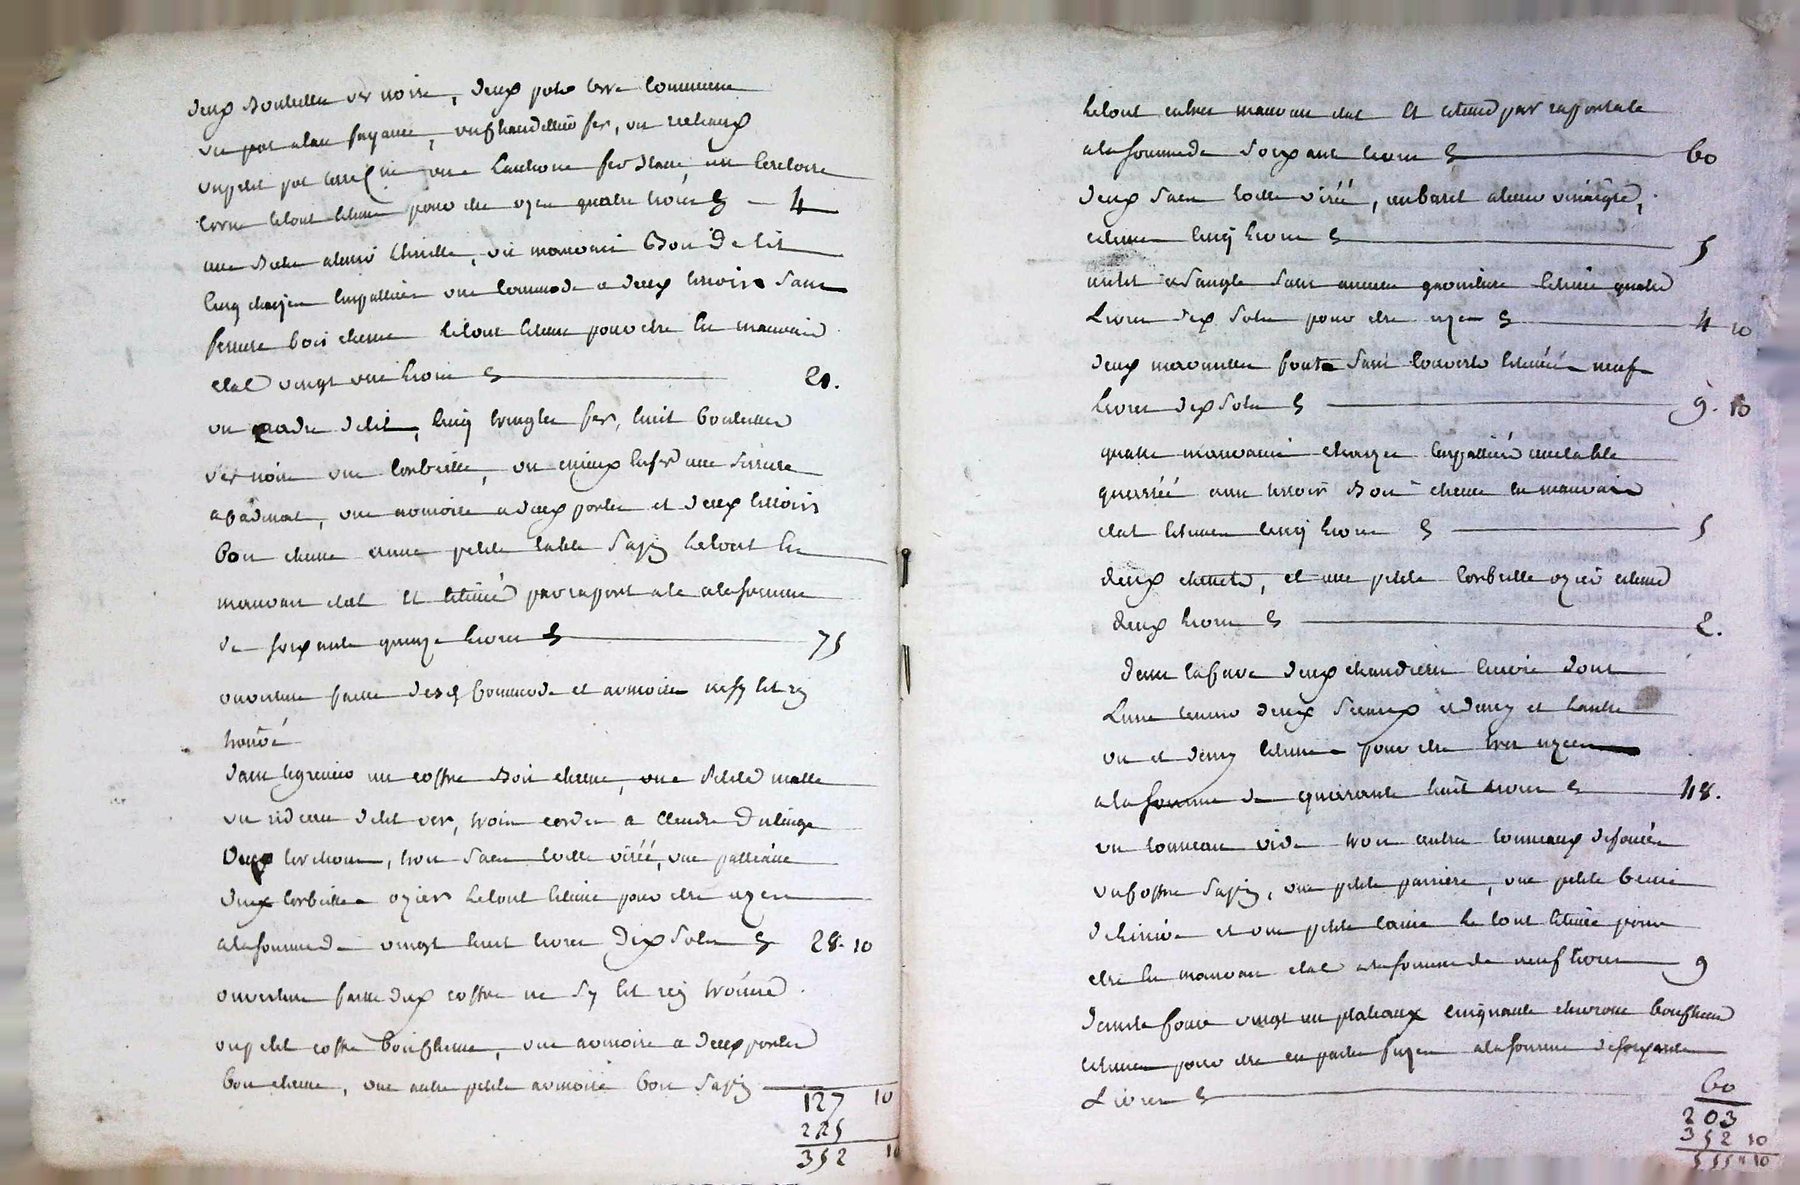 deux Bouteilles ver noire, deux pots terre commune
un pot a lau fayance, un chandellier fer, un rechaux
un petit pot une lanterne fer blanc, un
terre le tout estimé pour etre uzée quatre livres 4
une de lit
cinq chaises empalliée une commode a deux tiroirs sans
serrure bois chene le tout estimé pour etre en mauvais
etat vingt une livres 21.
un cadre de lit, cinq tringles fer, huit bouteilles
ver noire une corbeille, un une serrure
a cadenat, une armoire a deux portes et deux tiroirs
bois chene et une petite table sapin le tout en
mauvais etat et estimé par raport a ce a la somme
de soixante quinze livres 75
ouverture faitte commode et armoire
trouvé
dans le grenier un coffre Bois chene, une petite malle
un rideau de lit ver, trois cordes a etendre du linge
deux torchons, trois sacs toille
deux corbeilles ozier le tout estimé pour etre uzée
a la somme de vingt huit livres dix sols 28. 10
ouverture faitte coffre ne s'y est rien trouvé.
un petit coffre bois chene, une armoire a deux portes
bois chene, une autre petite armoire bois sapin
127 10
225
352 10
le tout en tres mauvais etat et estimé par raport a ce
a la somme de soixante livres 60
deux sacs toille, un baril a tenir vinaigre,
estimé cinq livres 5
un lit a sangle sans aucune garniture estimé quatre
Livres dix sols pour etre uzée 4 10
deux marmittes fonte sans couvert estimée neuf
livres dix sols 9. 10
quatre mauvaise chaizes empalliée une table
quarrée avec tiroir Bois chene en mauvais
etat estimée cinq livres 5
deux, et une petite corbeille ozier estimé
deux livres 2.
dans la cave deux chaudiere cuivre dont
L'une tenant deux seaux et demy et l'autre
un et demy estimée pour etre tres uzée
a la somme de quarante huit livres 48.
un tonneau vide trois autres tonneaux defoncés
un coffre sapin, une petite, une petite benne
et une petite le tout estimé pour
etre en mauvais etat a la somme de neuf livres 9
dans la cour vingt un plateaux cinquante chevrons bois chene
estimée pour etre en partie a la somme de soixante
Livres 60
203
352 10
555 " 10